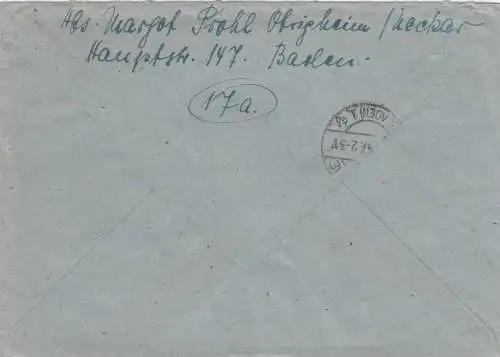 Abs. Margot Prohl Obrigheim / Neckar
Hauptstr. 147. Baden.
17a.